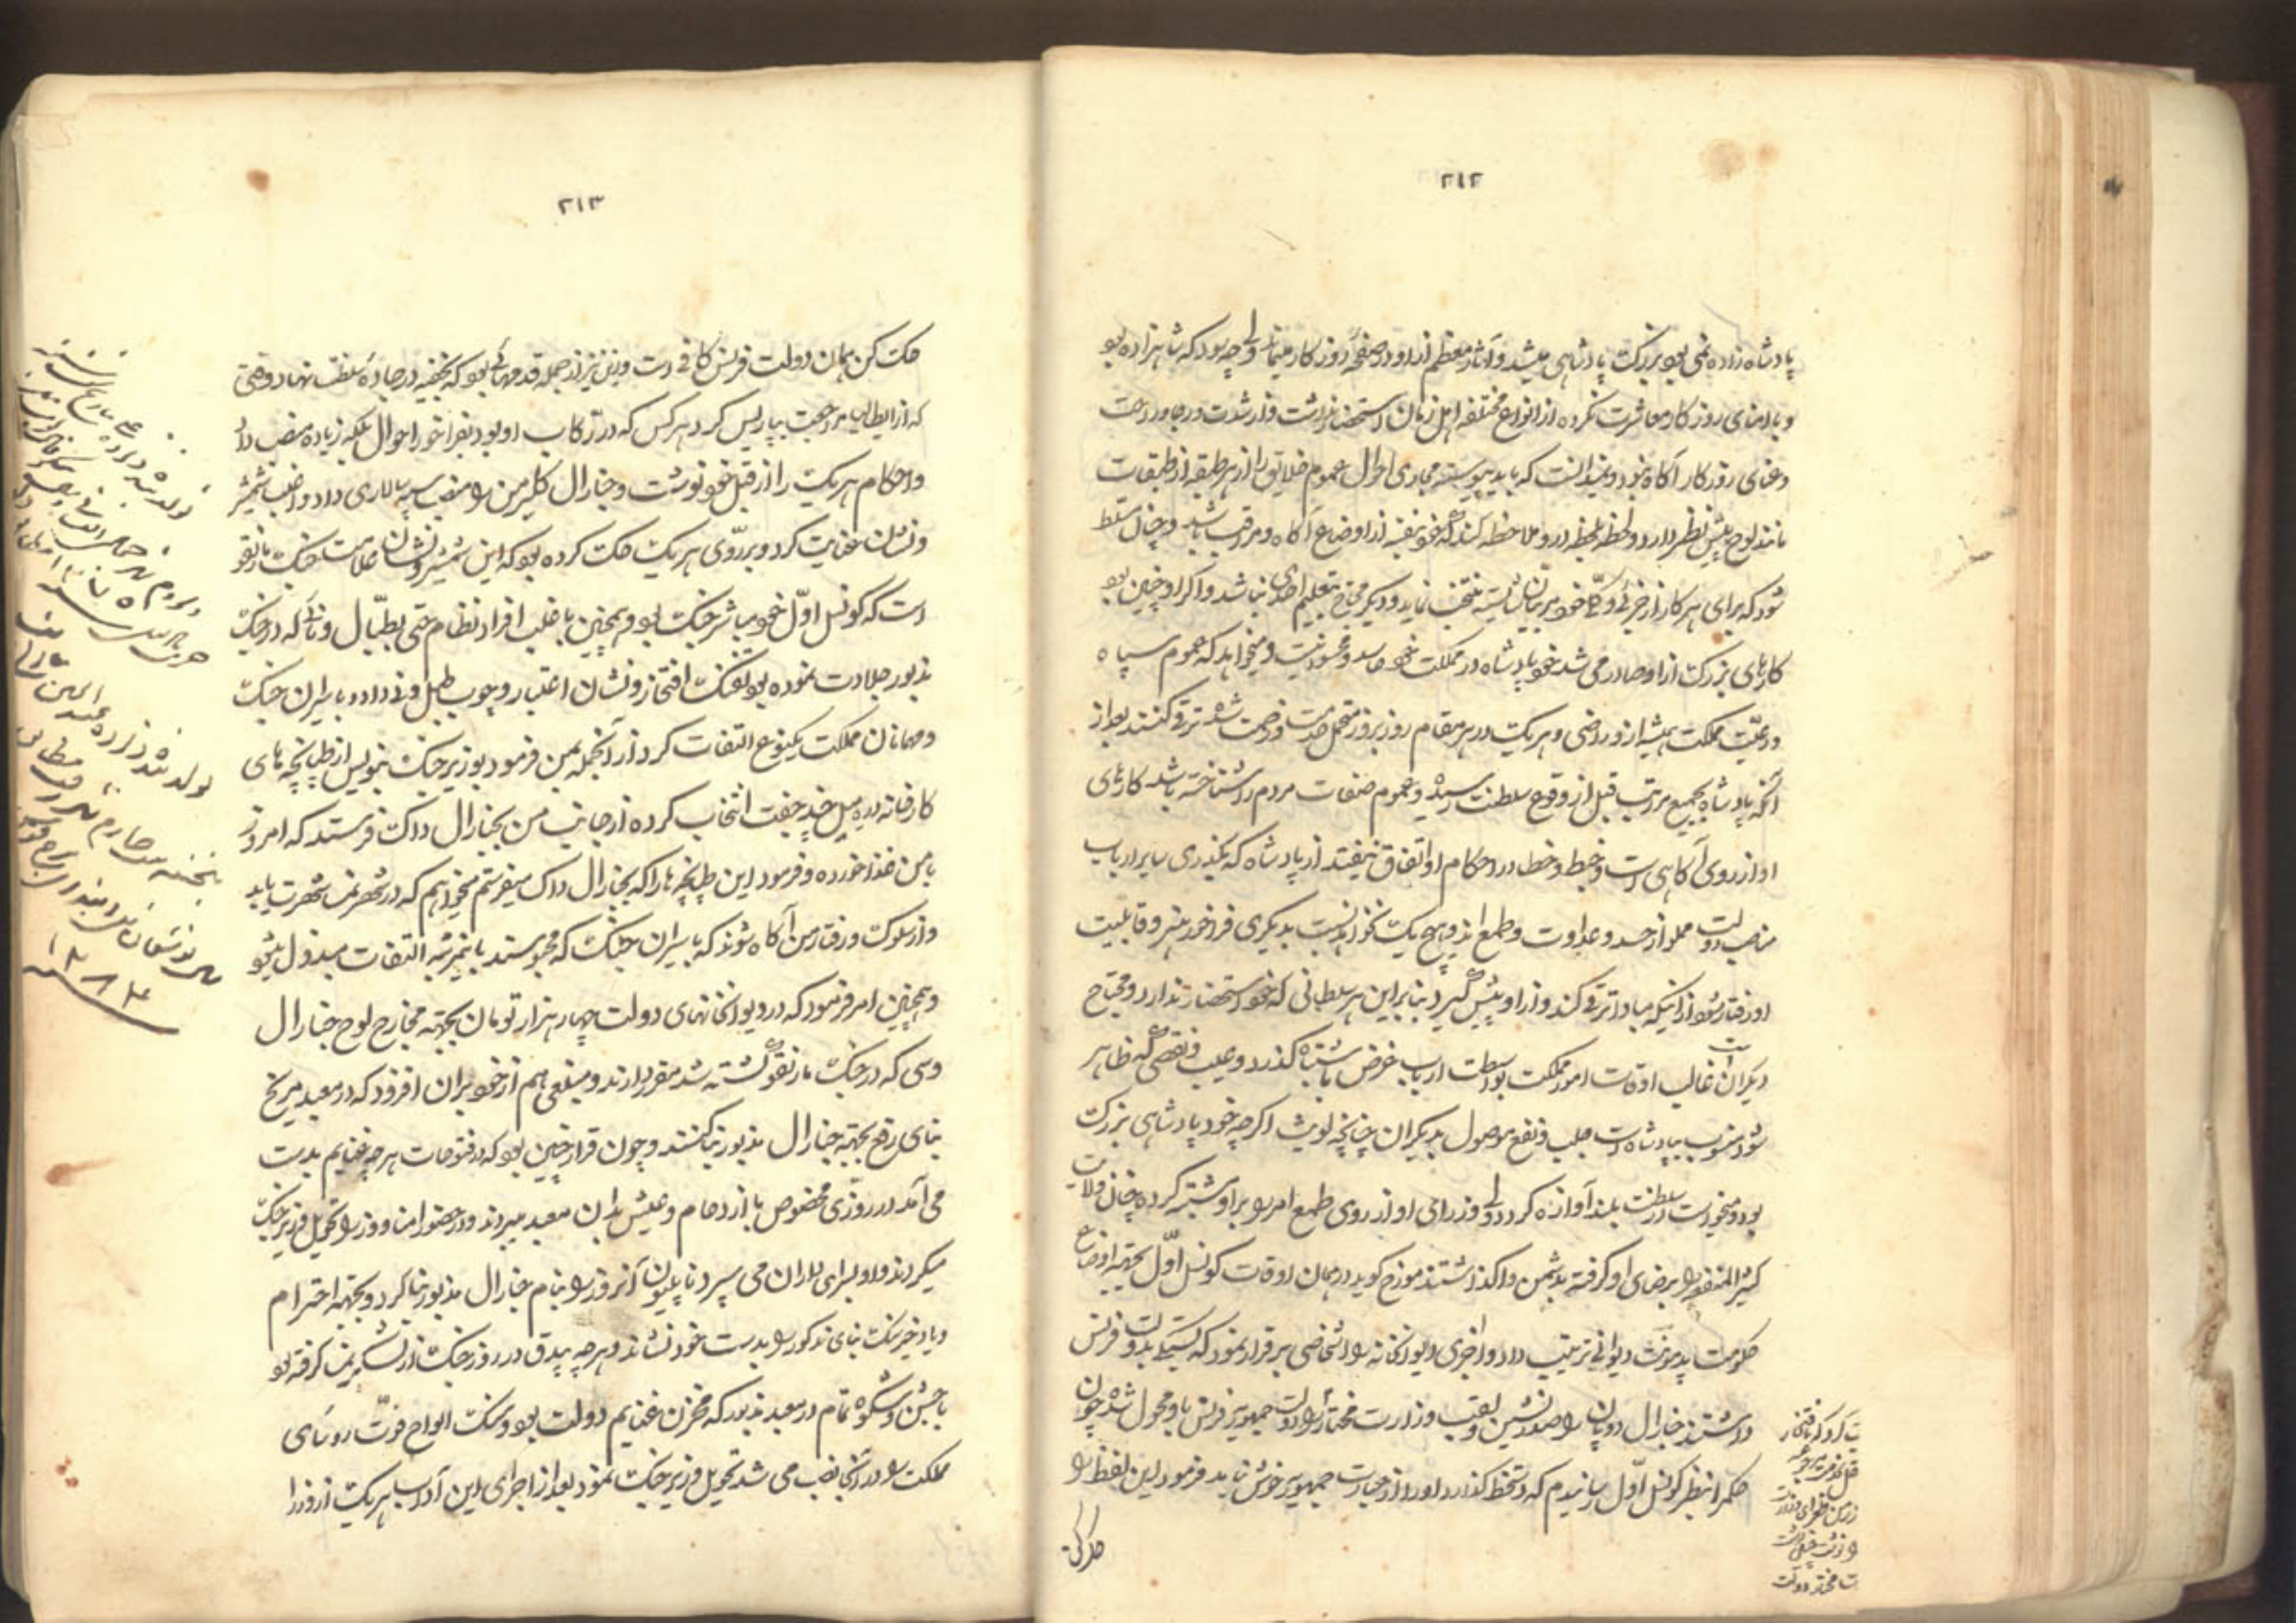 ۲۱۲
پادشاه زاده نمی‌بود بزرگ پادشاهی میشد و آثار معظم از او در صفحه روزگار میماند ولی چه سود که شاهزاده بود
و با ابنای روزگار معاشرت نکرده از انواع مختلفه اهل زمان استحضار نداشت و از شدت و رخا و راحت
و عنای روزگار آگاه نبود و نمیدانست که باید پیوسته مجاری احوال عموم خلایق را از هر طبقه از طبقات
مانند لوح پیش نظر دارد و لحظه بلحظه در او ملاحظه کند که خود بنفسه از اوضاع آگاه و مراقب باشد و چنان مسلط
شود که برای هر کار از جزئی و کلی خود مردمان شایسته منتخب نماید و دیگر محتاج بتعلیم احدی نباشد و اگر او چنین بود
کارهای بزرگ از او صادر می‌شد خود پادشاه در مملکت خود حاسد و محسود نیست و میخواهد که عموم سپاه
و رعیت مملکت همیشه از او راضی و هر یک در هر مقام روز بروز متحمل خدمت و زحمت شده ترقی کنند بعد از
آنکه پادشاه بجمیع مراتب قبل از وقوع سلطنت رسیده و عموم صفات مردم را شناخته باشد کارهای
او از روی آگاهی است و خبط و خطا در احکام او اتفاق نیفتد از پادشاه که بگذری سایر ارباب
مناصب دولت مملو از حسد و عداوت و طمع اند و هیچ یک نخواهد نسبت بدیگری فراخور هنر و قابلیت
او رفتار شود از اینکه مبادا ترقی کند و از او پیش گیرد بنابراین هر سلطانی که خود استحضار ندارد و محتاج
دیگران است غالب اوقات امور مملکت بواسطه ارباب غرض باشتباه گذرد و عیب و نقصی که ظاهر
شود منسوب بپادشاه است و نفع موصول بدیگران چنانچه لویث اگرچه خود پادشاهی بزرگ
بود و میخواست در سلطنت بلند آوازه گردد ولی وزرای او از روی طمع امر را بر او مشتبه کرده چنان ولایت
کثیر المنفعه را برضای او گرفته بدشمن واگذاشتند مورخ گوید در همان اوقات کونسل اول بجهة اوضاع
حکومت پدمونت دیوانی ترتیب داد و اجزای دیوانخانه را اشخاصی برقرار نمود که بستگی بدولت فرنس
داشتند جنارال دوپان را صدرنشین و لقب وزارت مختار دولت جمهوریه فرنس باو محول شد چون
حکم را بنظر کونسل اول رسانیدم که دستخط گذارد او را از عبارت جمهوریه خوش نیامد فرمود این لفظ را
حک کن
۲۱۳
حک کن همان دولت فرنس کافی است و این نیز از جمله قدمهائی بود که بخفیه در جاده سلطنت نهاد و وقتی
که از ایطالیا مراجعت بپاریس کرد هر کس که در رکاب او بود بفراخور احوال بلکه زیاده منصب داد
و احکام هر یک را از قبل خود نوشت و جنارال کلرمن را منصب سپه سالاری داد و اغلب شمشیر
و نشان عنایت کرد و بر روی هر یک حک کرده بود که این شمشیر و نشان علامت جنگ مارنقو
است که کونسل اول خود مباشر جنگ بود و همچنین باغلب افراد نظام حتی بطبال و نائی که در جنگ
مذبور جلادت نموده بود تفنگ افتخار و نشان اعتبار و چوب طبل و نی داد و با سیران جنگ
و مهمانان مملکت یکنوع التفات کرد از آنجمله بمن فرمود بوزیر جنگ بنویس از طپانچه های
کارخانه ورسیل چند جفت انتخاب کرده از جانب من بجنارال داک فرستد که امروز
با من غذا خورده و فرمود این طپانچه ها را که بجنارال داک میفرستم میخواهم که در شهر نمسه شهرت یابد
و از سلوک و رفتار من آگاه شوند که با سیران جنگ که محبوسند باین مرتبه التفات مبذول میشود
و همچنین امر فرمود که در دیوانخانهای دولت چهار هزار تومان بجهة مخارج لوح جنارال
دسی که در جنگ مارنقو کشته شد مقرر دارند و مبلغی هم از خود بر آن افزود که در معبد مریخ
بنای رفع بجهة جنارال مذبور بنا کنند و چون قرار چنین بود که در فتوحات هر چه غنایم بدست
می‌آمد در روزی مخصوص با ازدحام و عیش بدان معبد میبردند و در حضور امنا و وزرا تحویل وزیر جنگ
میکردند و او بسرایداران می سپرد ناپلیون آنروز را بنام جنارال مذبور بنا کرد و بجهة احترام
و یاد خیر سنگ بنای مذکور را بدست خود نشاند و هر چه بیدق در روز جنگ از لشکر نمسه گرفته بود
با جشن و شکوه تمام در معبد مذبور که مخزن غنایم دولت بود و سنگ الواح فوت رؤسای
مملکت را در آنجا نصب می شد تحویل وزیر جنگ نمود بعد از اجرای این آداب هر یک از وزرا
تولد شد
تولد شد نورزاده
پنجشنبه چهارم شهر
۱۲۸۴